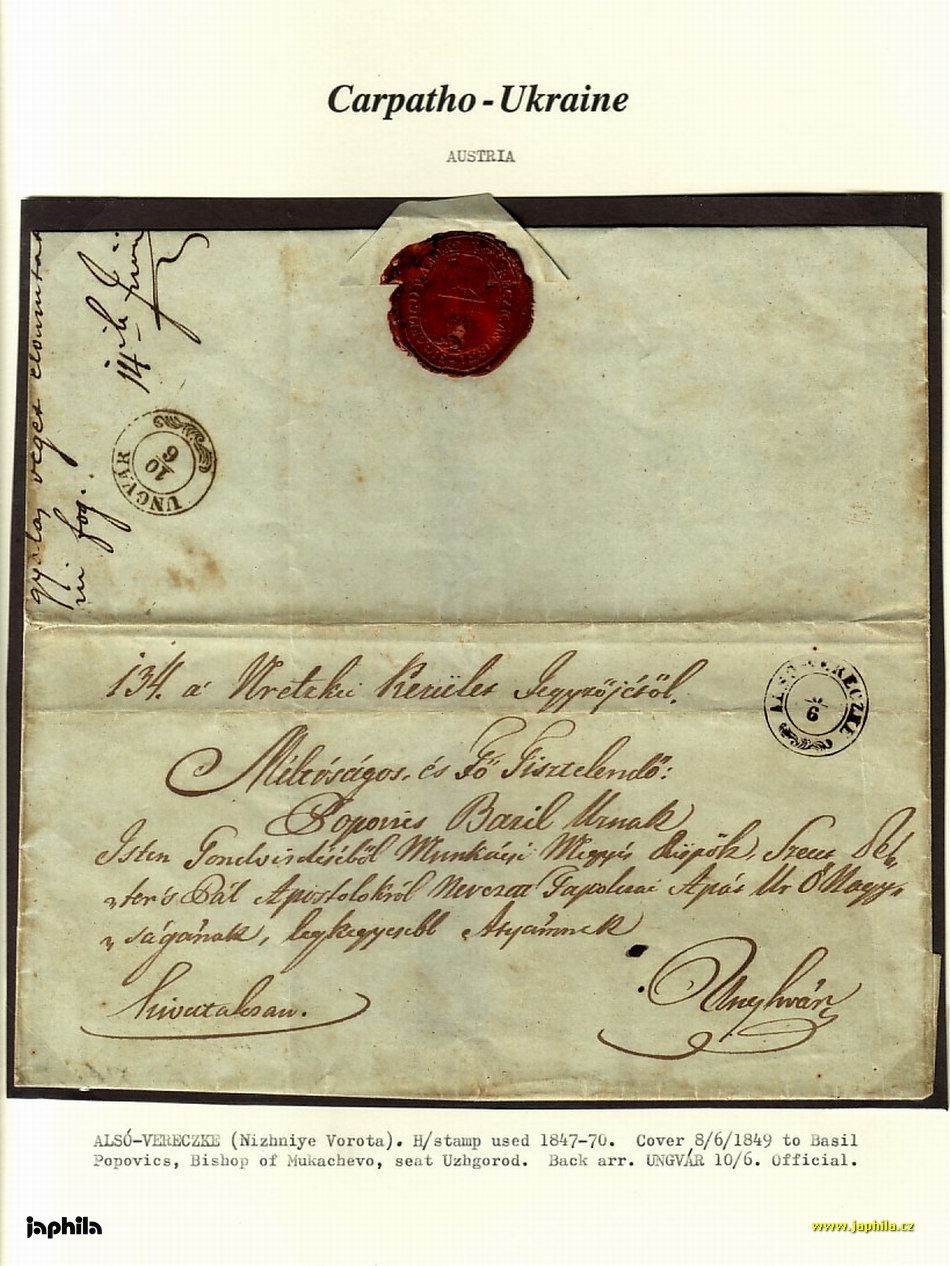 Carpatho-Ukraine
AUSTRIA
14
fog.
UNGVÁR
10
6
134. a' Vretzkei Kerület Jegyzőjétől.
ALSÓ-VERECZKE
6
Méltóságos, és Fő Tisztelendő:
Popovics Bazil Urnak
Isten Gondviseléséből Munkácsi Megyés Püspök, Szent Pé„
„ter s Pál Apostolokról Nevezett Tapolczai Apát Ur Ő Nagy„
„ságának, legkegyesebb Atyámnak
hivatalosan.
Unghvár
ALSÓ-VERECZKE (Nizhniye Vorota). H/stamp used 1847-70. Cover 8/6/1849 to Basil
Popovics, Bishop of Mukachevo, seat Uzhgorod. Back arr. UNGVÁR 10/6. Official.
japhila
www.japhila.cz